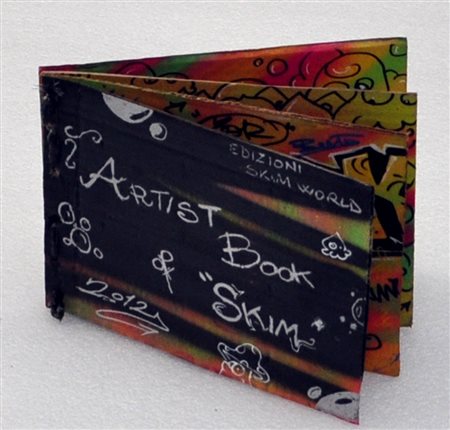 EDIZIONI
SKIM WORLD
ARTIST
BOOK
&
"SKIM"
2012